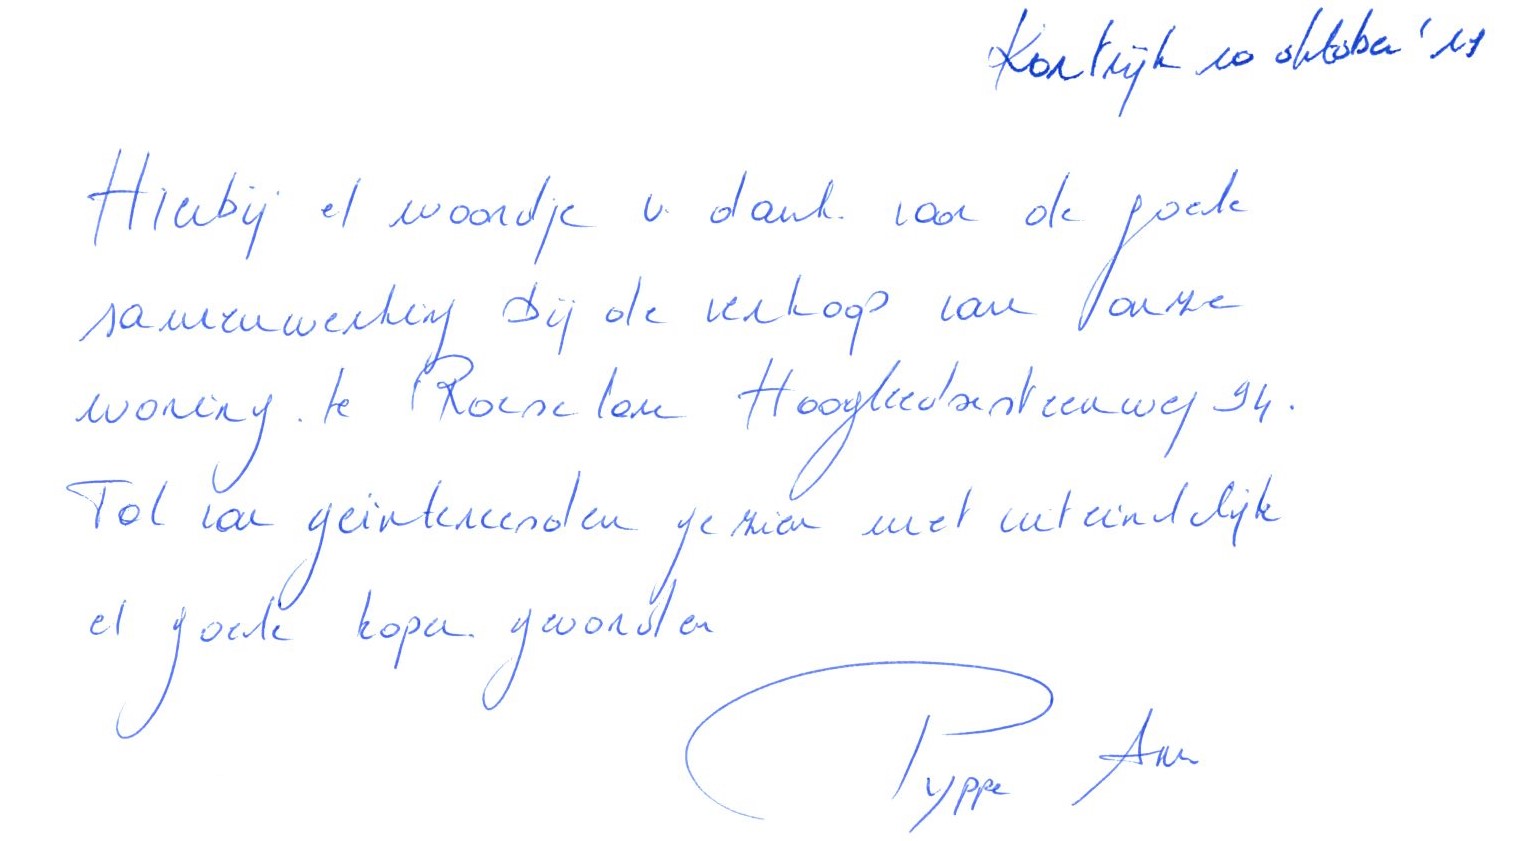 Kortrijk 10 oktober '11
Hierbij et woordje v. dank. voor de goede
samenwerking bij de verkoop van onze
woning. te Roeselare Hoogleedsesteenweg 94.
Tal van geinteresserden gezien met uiteindelijk
et goede koper. geworden
Pyppe Ann